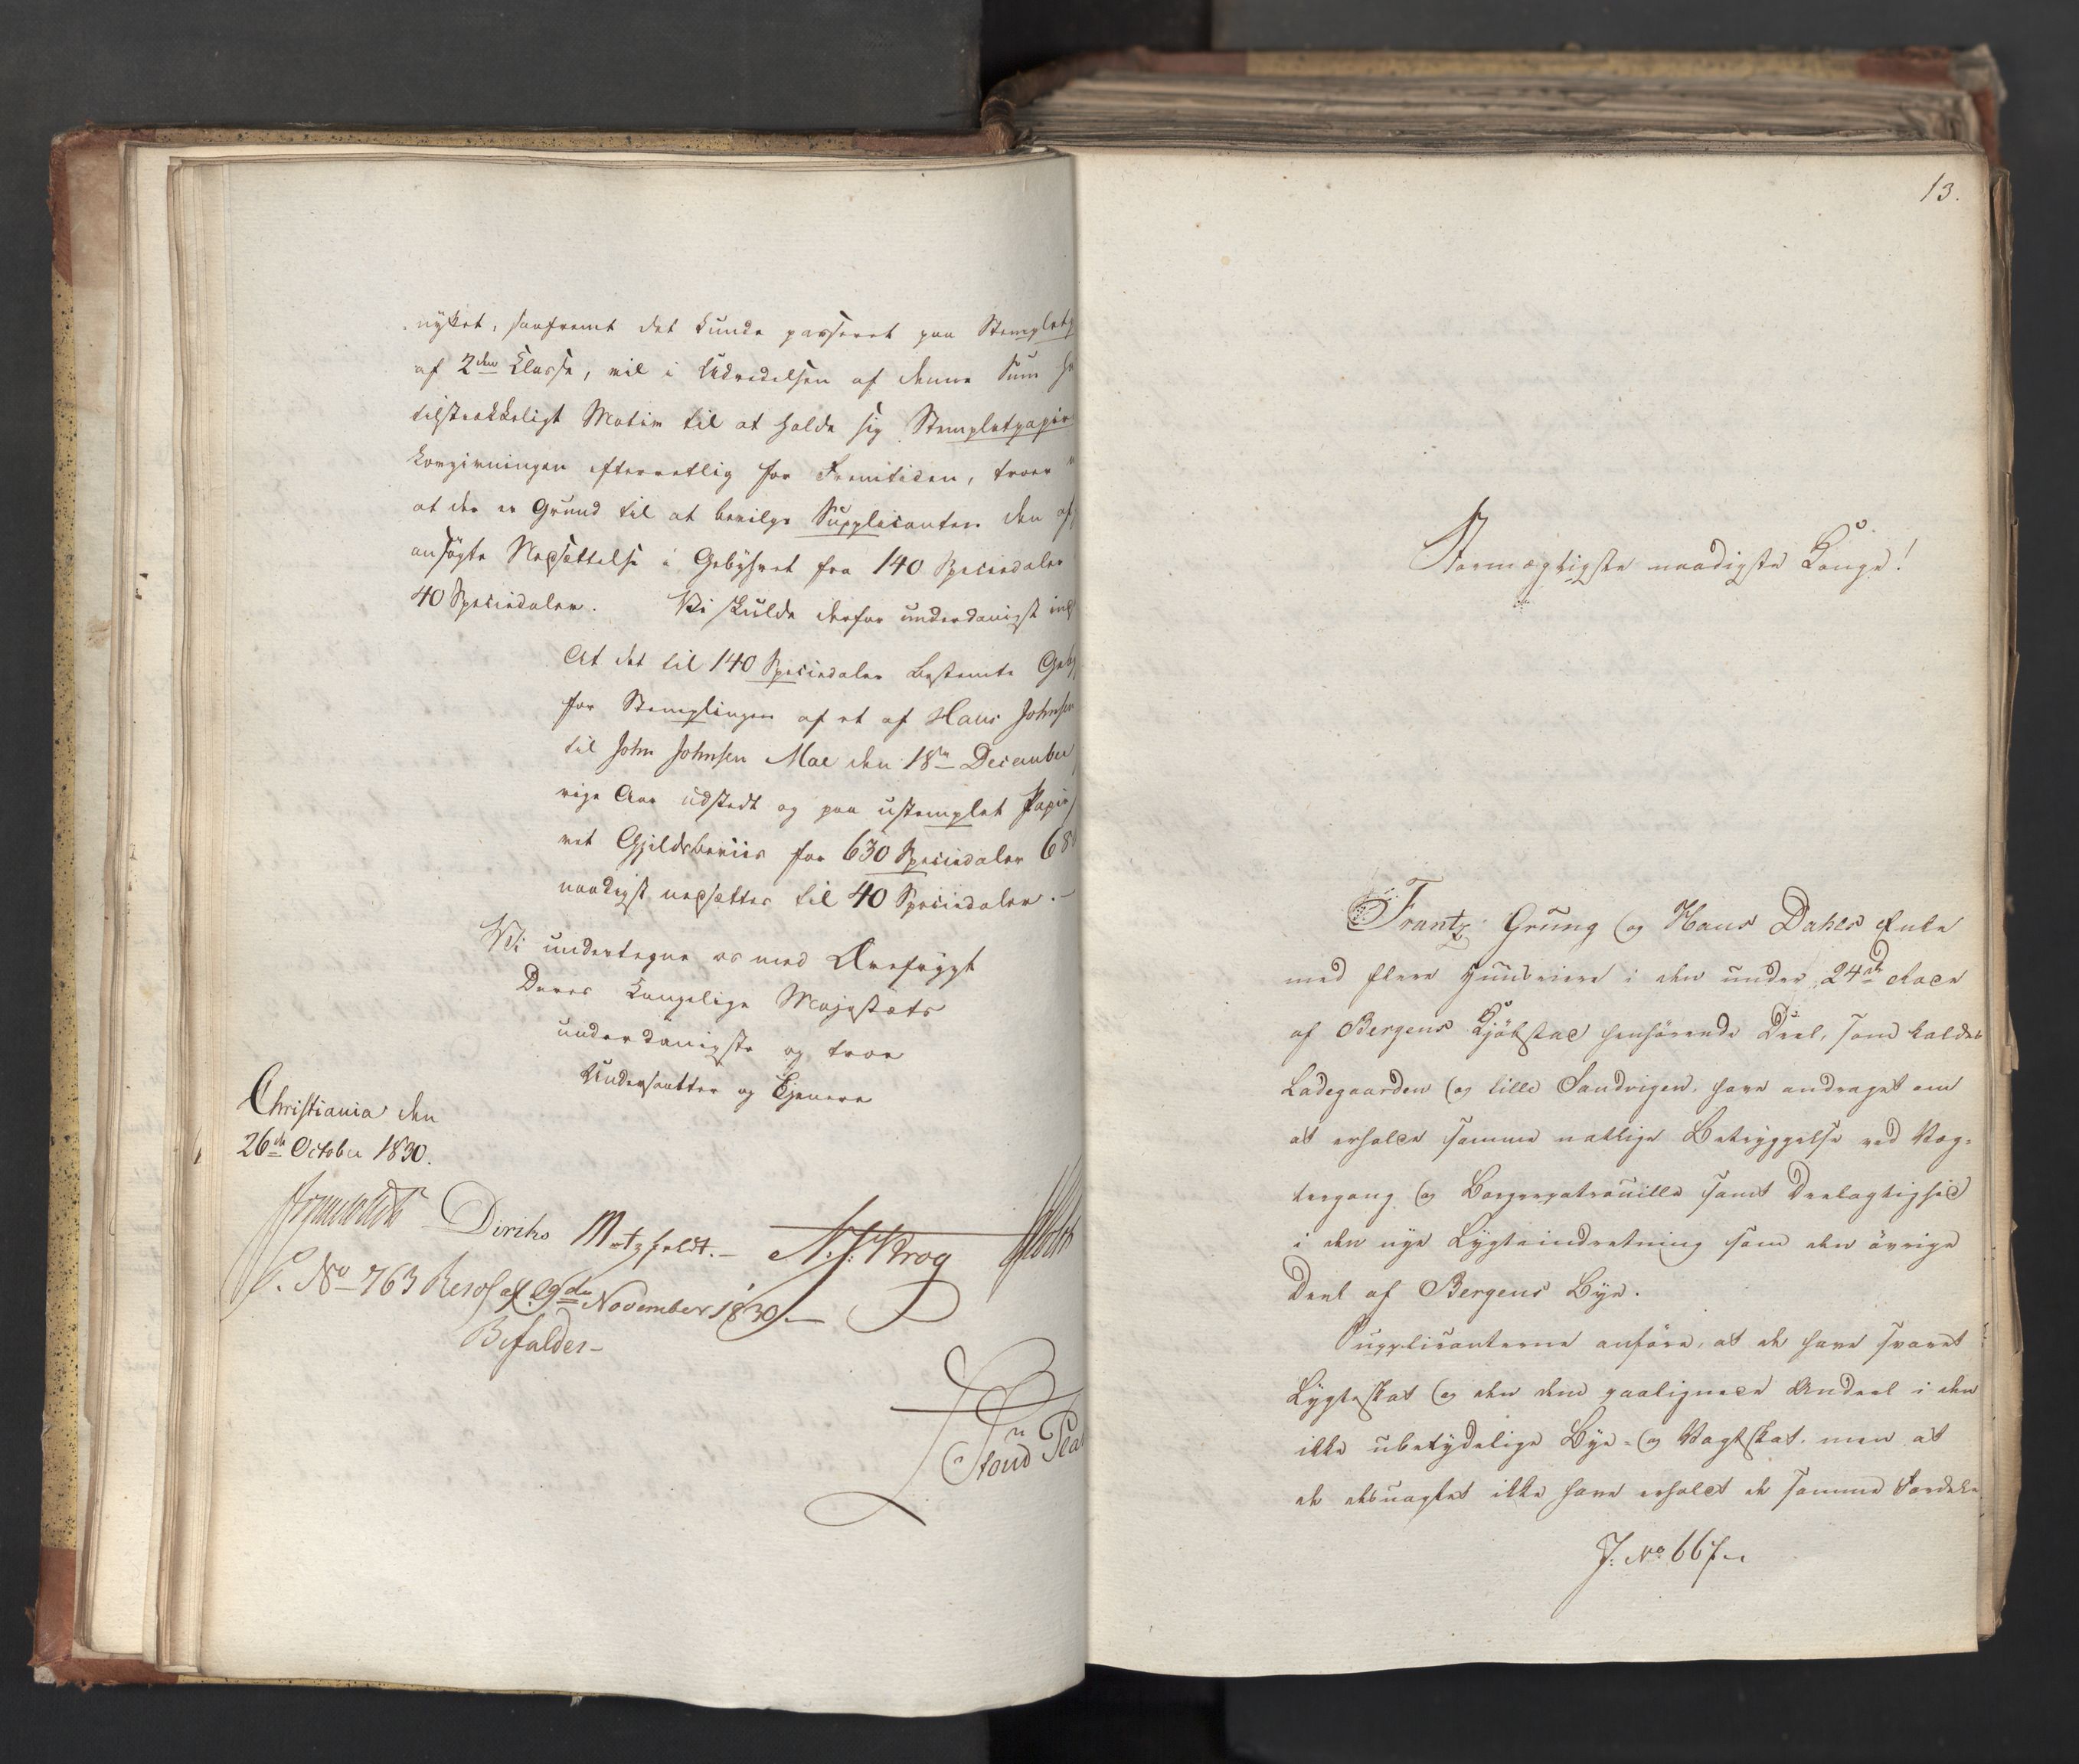 nyttet, saafremt det kunde passeret paa Stemplet
af 2den Classe, vil i Udredelsen af denne Sum
tilstrækkeligt Motiv til at holde sig Stempletpapir
Lovgivningen efterrettelig for Fremtiden, troer
at der er Grund til at bevilge Supplicanten den af
ansøgte Nedsættelse i Gebyhret fra 140 Speciedaler
40 Speciedaler. Vi skulde derfor underdanigst ind
At det til 140 Speciedaler bestemte Geby
for Stemplingen af et af Hans Johnsen
til John Johnsen Moe den 18de December
rige Aar udstedt og paa ustemplet Papir
vet Gjeldsbeviis for 630 Speciedaler 68
naadigst nedsættes til 40 Speciedaler.-
Vi undertegne os med Ærefrygt
Deres Kongelige Majestæts
underdanigste og troe
Undersaatter og Tjenere
Christiania den
26de October 1830.
Diriks Motzfeldt.- N.J. Krog
C. No 763 Resol. af 9de November 1830.-
Bifaldes-
13.
Stormægtigste naadigste Konge!
Frantz Grung og Hans Dahls Enke
med flere Huuseiere i den under 24de Rode
af Bergens Kjøbstad henhørende Deel, som kaldes
Ladegaarden og lille Sandvigen, have andraget om
at erholde samme natlige Betryggelse ved Væg-
tergang og Borgerpatrouille samt Deelagtighed
i den nye Lygteindretning som den øvrige
Deel af Bergens Bye.
Supplicanterne anføre, at de have svaret
Lygteskat og den dem paalignede Andeel i den
ikke ubetydelige Bye- og Vagtskat, men at
de desuagtet ikke have erholdt de samme Fordele
J: No 667.-